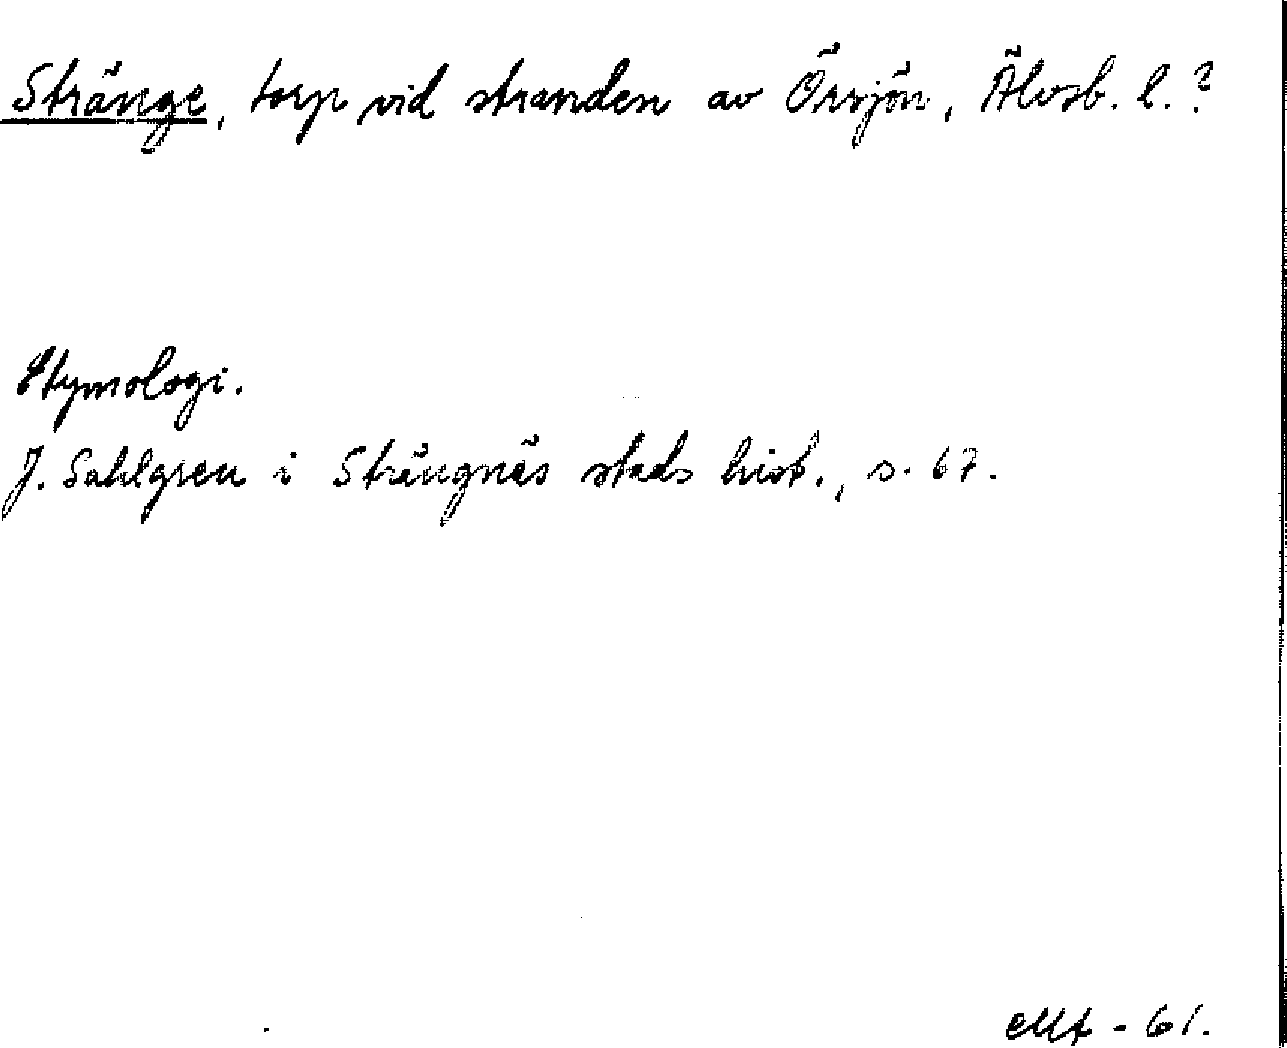 Stränge, torp vid stranden av Örsjön, Älvsb. l.?
Etymologi.
J. Sahlgren i Strängnäs stads hist., s. 67.
- 61.